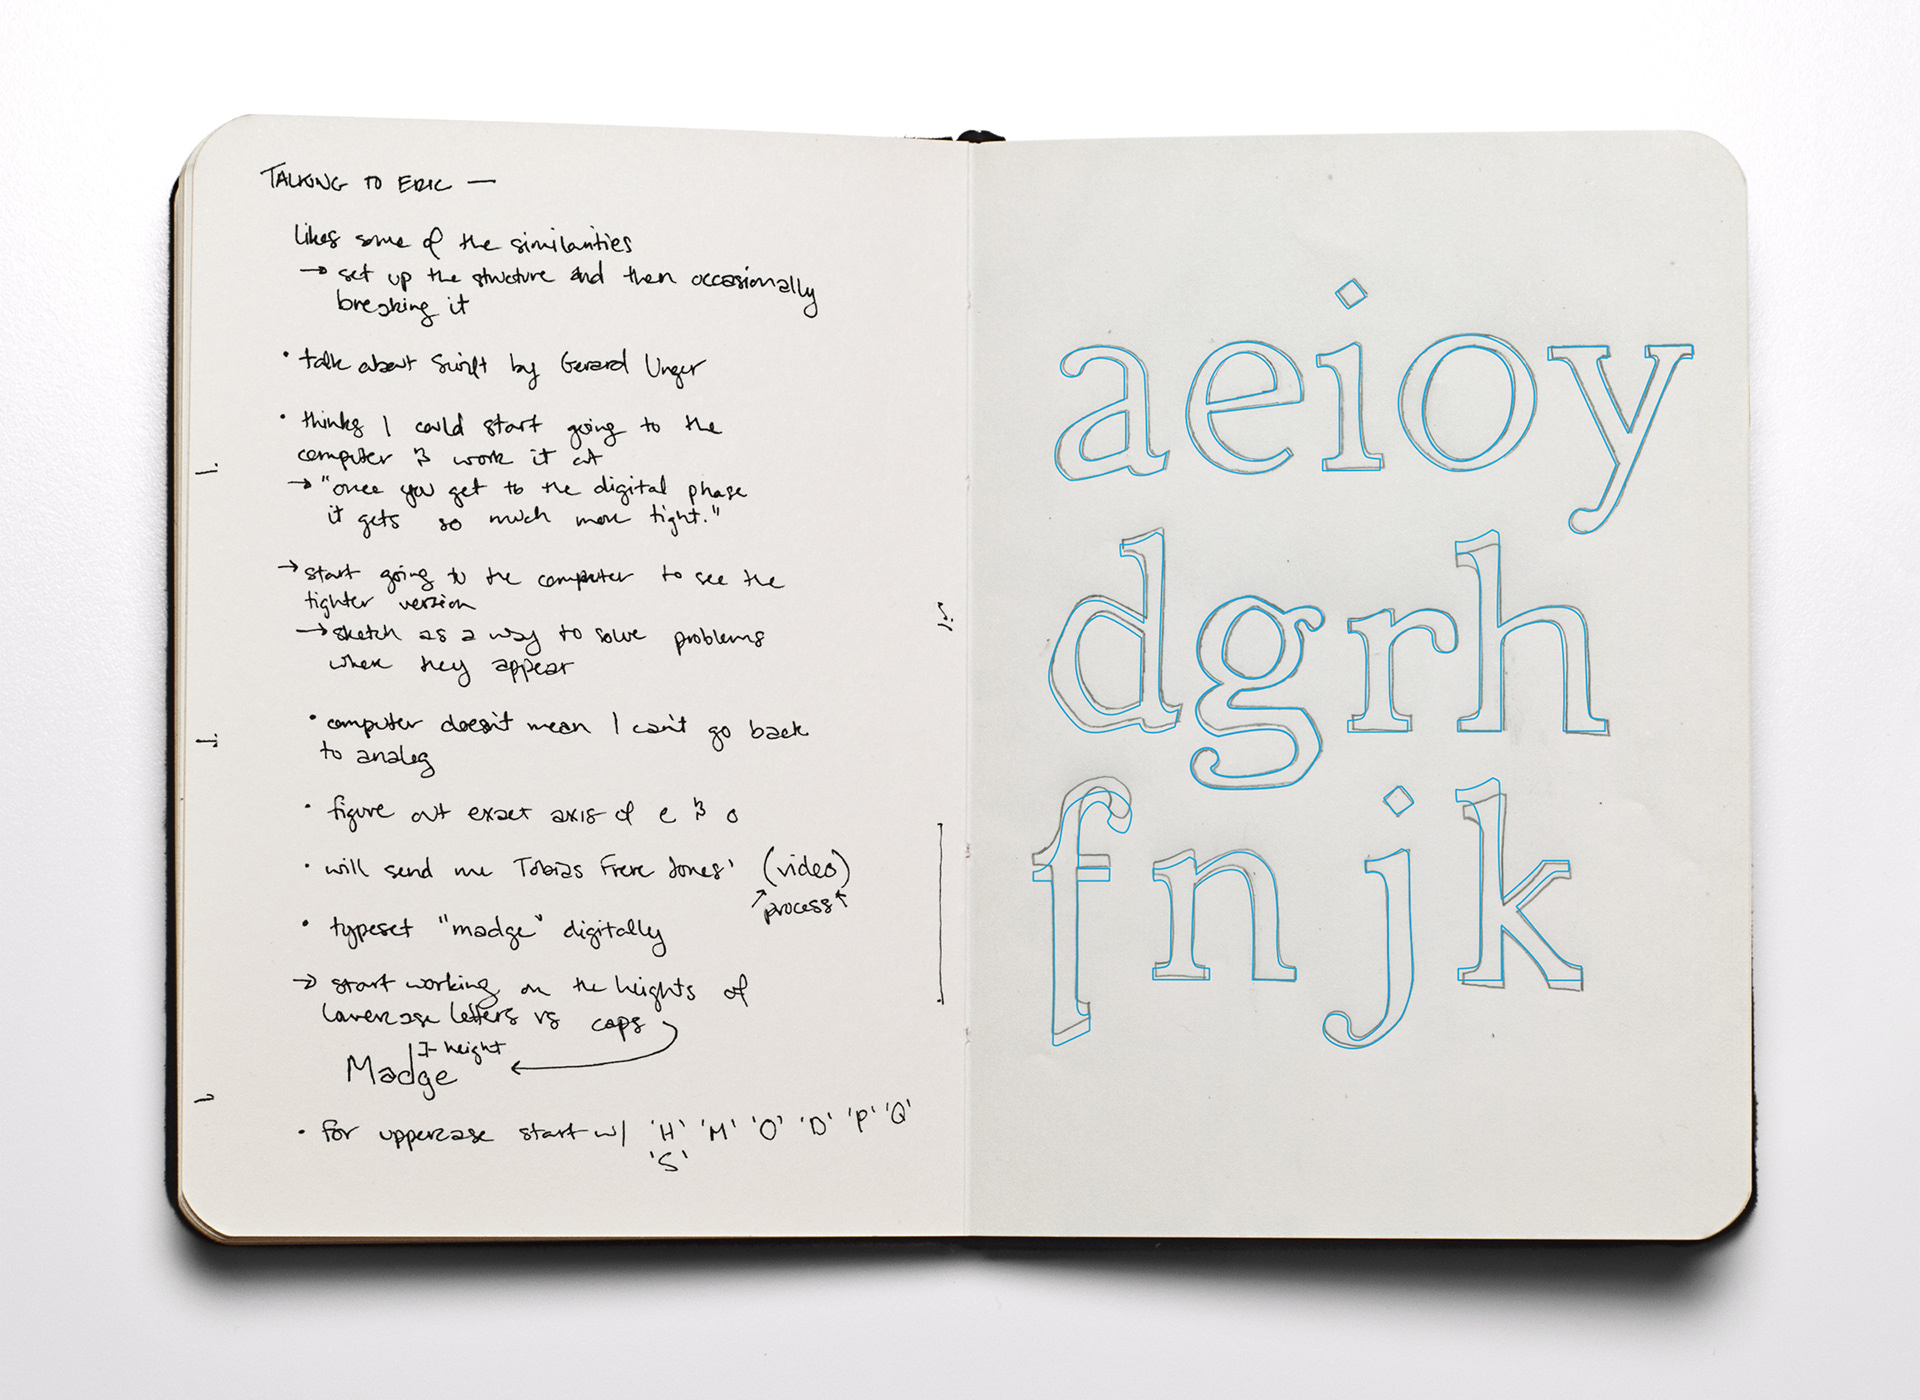 TALKING TO ERIC —
likes some of the similarities
→ set up the structure and then occasionally
breaking it
• talk about Swift by Gerard Unger
• thinks I could start going to the
computer & work it out
→ "once you get to the digital phase
it gets so much more tight."
→ start going to the computer to see the
tighter version
→ sketch as a way to solve problems
when they appear
• computer doesn't mean I can't go back
to analog
• figure out exact axis of e & o
• will send me Tobias Frere Jones' (video)
process
• typeset "madge" digitally
→ start working on the heights of
lowercase letters vs caps
height
Madge
• for uppercase start w/ 'H' 'M' 'O' 'D' 'P' 'Q'
'S'
aeioy
dgrh
fnjk